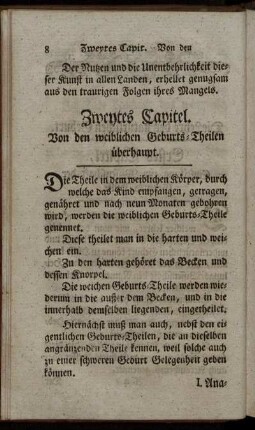 8 Zweytes Capit. Von den
Der Nutzen und die Unentbehrlichkeit die-
ser Kunst in allen Landen, erhellet genugsam
aus den traurigen Folgen ihres Mangels.
Zweytes Capitel.
Von den weiblichen Geburts-Theilen
überhaupt.
Die Theile in dem weiblichen Körper, durch
welche das Kind empfangen, getragen,
genähret und nach neun Monaten gebohren
wird, werden die weiblichen Geburts-Theile
genennet.
Diese theilet man in die harten und wei-
chen ein.
Zu den harten gehöret das Becken und
dessen Knorpel.
Die weichen Geburts-Theile werden wie-
derum in die ausser dem Becken, und in die
innerhalb demselben liegenden, eingetheilet.
Hiernächst muß man auch, nebst den ei-
gentlichen Geburts-Theilen, die an dieselben
angränzenden Theile kennen, weil solche auch
zu einer schweren Geburt Gelegenheit geben
können.
I. Ana-